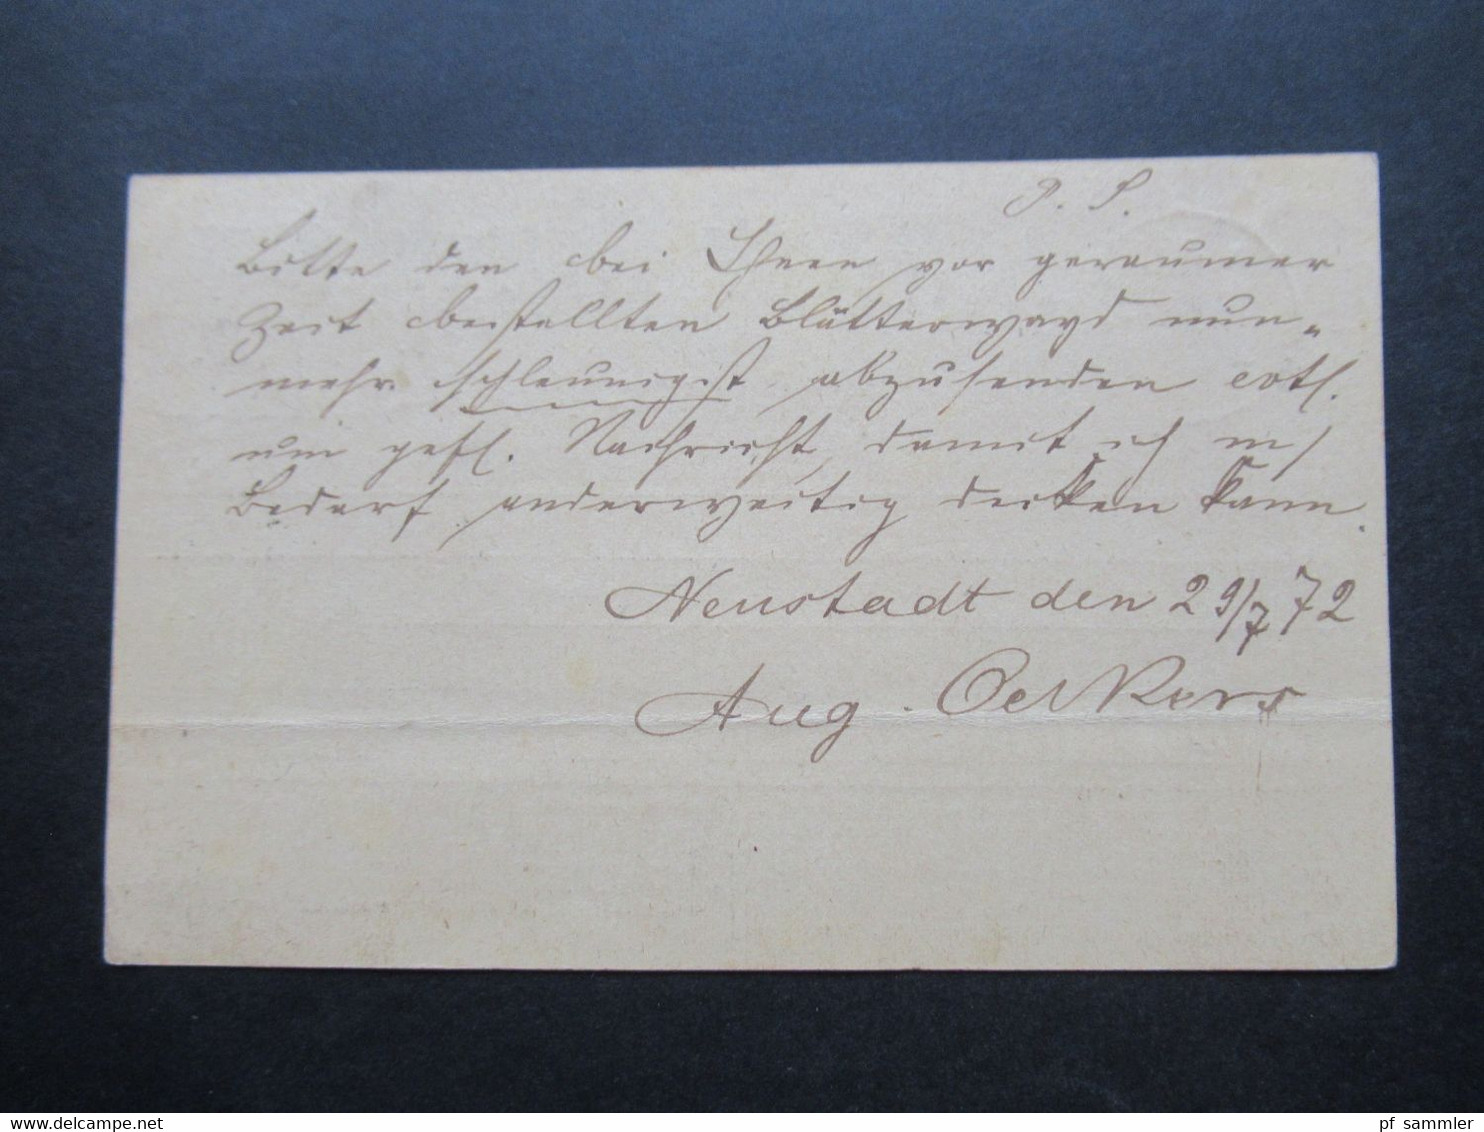 P. S.
Bitte den bei Ihnen vor geraumer
Zeit bestellten Blätter nun-
mehr schleunigst abzusenden
um gefl. Nachricht, damit ich m/
Bedarf anderweitig decken kann.
Neustadt den 29/7 72
Aug. Oelkers
delcampe.net
pf_sammler